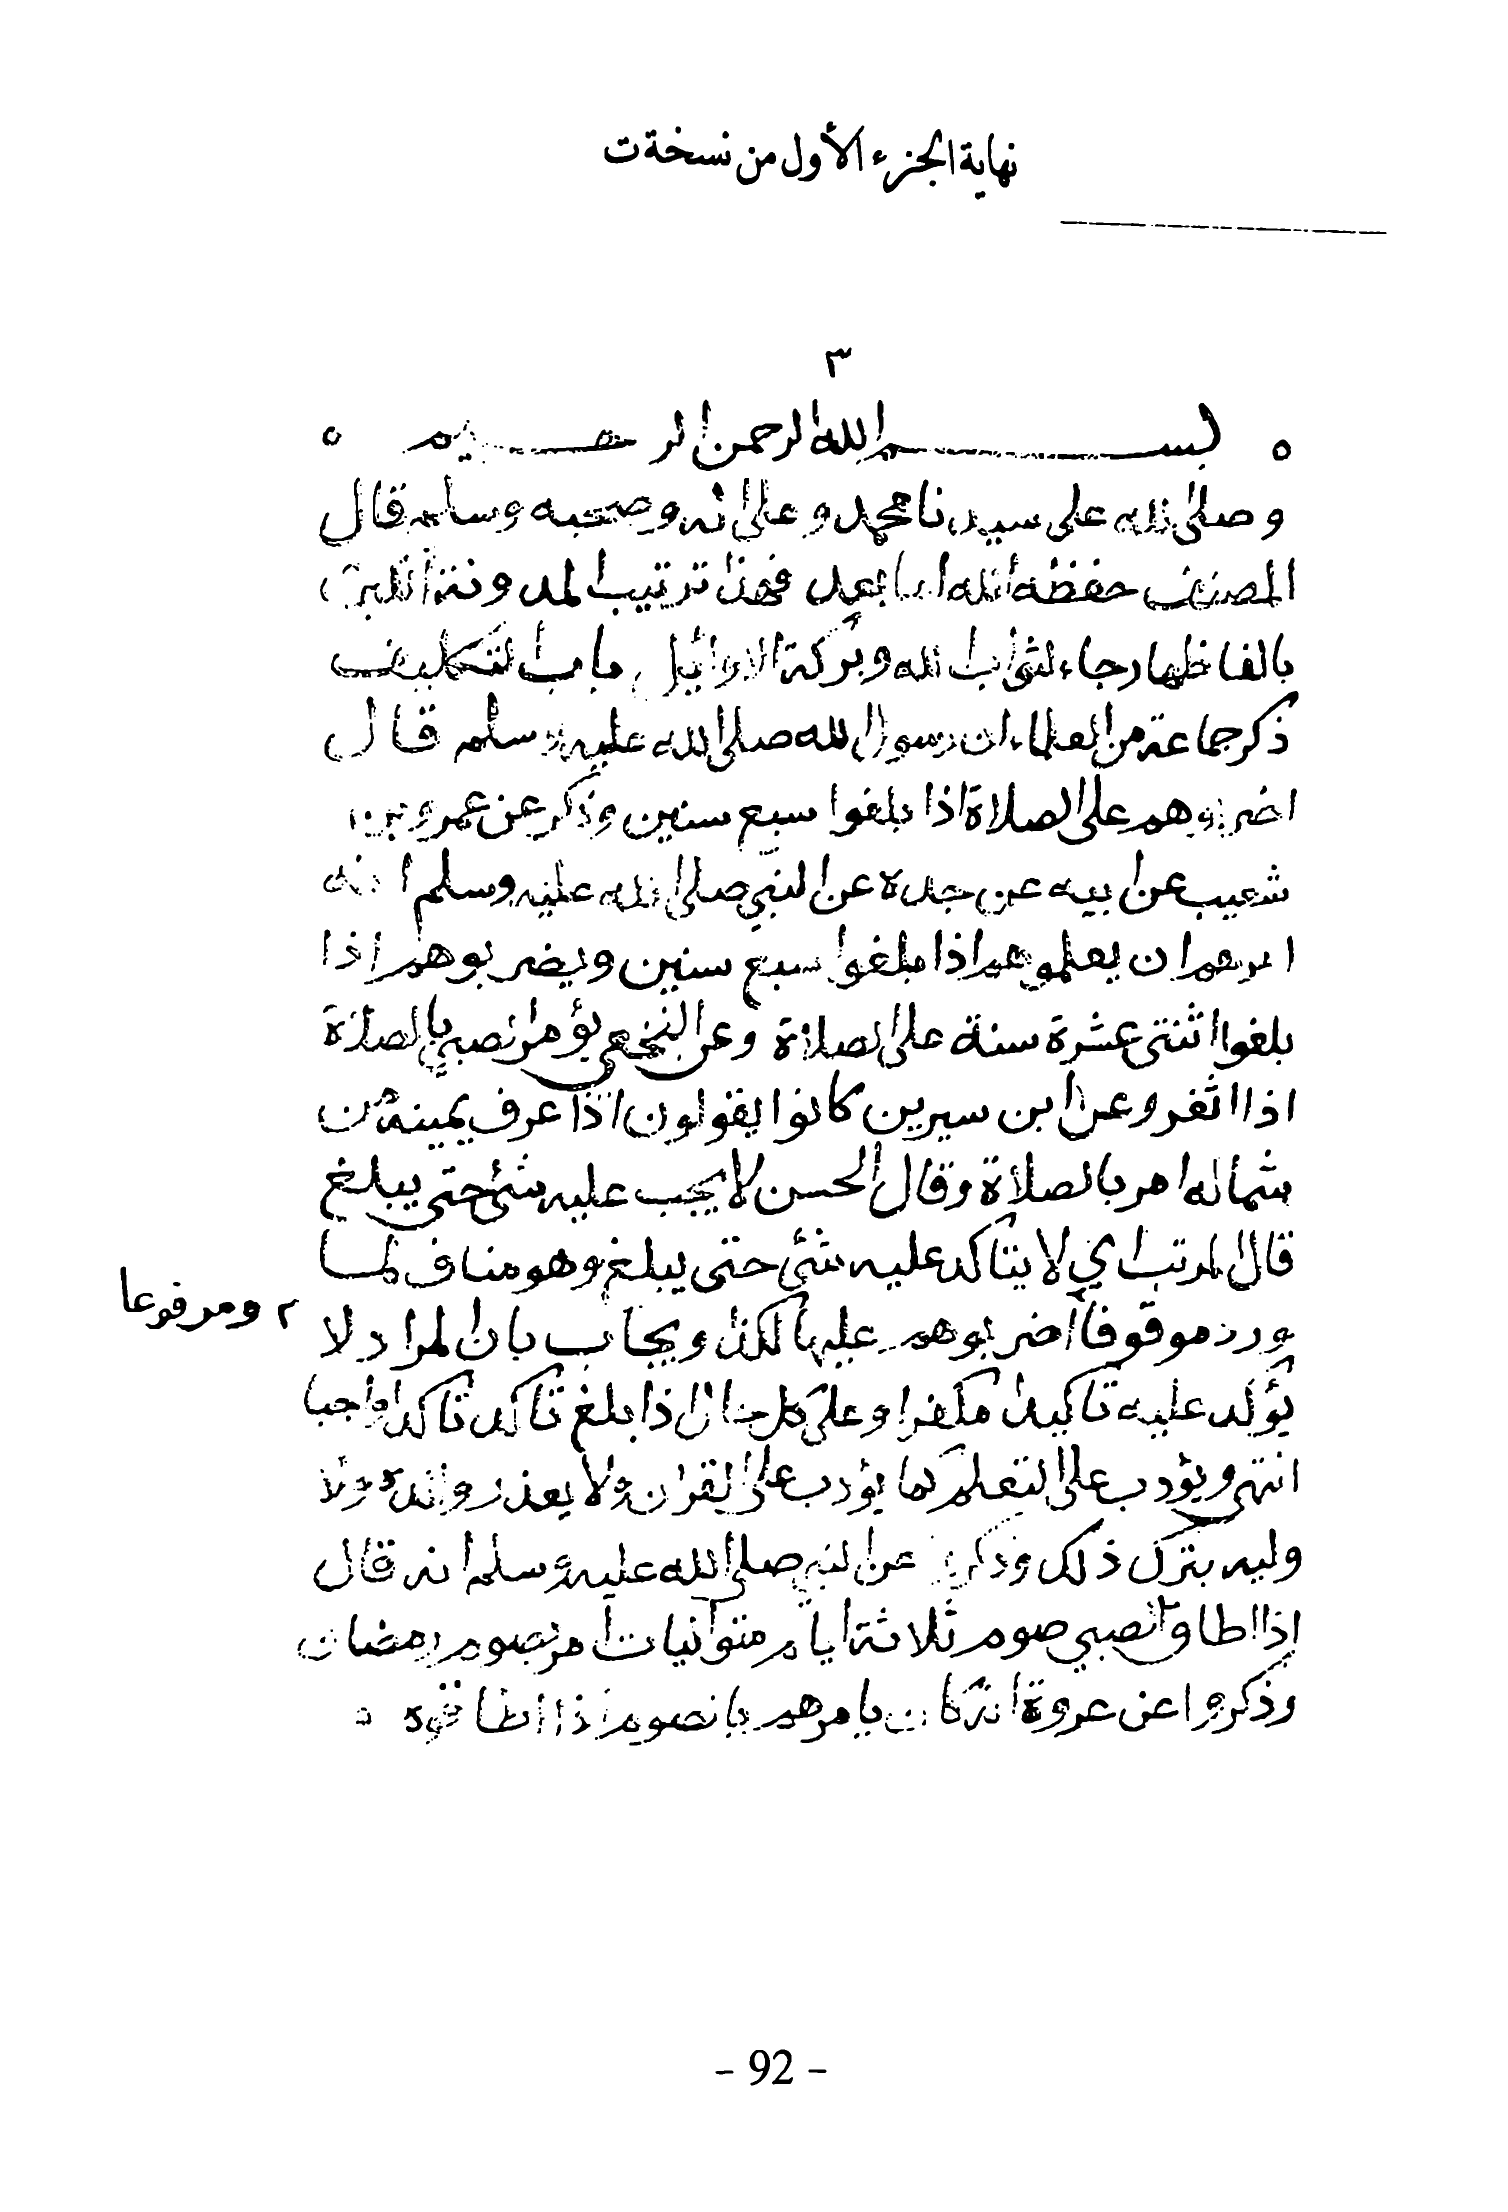 نهاية الجزء الأول من نسخة ت
٣
بسم الله الرحمن الرحيم
وصلى الله على سيدنا محمد وعلى اله وصحبه وسلم قال
المصنف حفظه الله اما بعد فهذا ترتيب المدونة الكبرى
بالفاظها رجاء لثواب الله وبركة الاوائل باب التكليف
ذكر جماعة من العلماء ان رسول الله صلى الله عليه وسلم قال
اضربوهم على الصلاة اذا بلغوا سبع سنين وذكر عن عمرو بن
شعيب عن ابيه عن جده عن النبي صلى الله عليه وسلم انه
امرهم ان يعلموهم اذا بلغوا سبع سنين ويضربوهم اذا
بلغوا اثنتي عشرة سنة على الصلاة وعن النخعي يؤمر الصبي بالصلاة
اذا اثغر وعن ابن سيرين كانوا يقولون اذا عرف يمينه من
شماله امر بالصلاة وقال الحسن لا يجب عليه شئ حتى يبلغ
قال المرتب اي لا يتاكد عليه شئ حتى يبلغ وهو مناف لما
ورد موقوفا اضربوهم عليها لكذا ويجاب بان المراد لا
٢ ومرفوعا
يؤكد عليه تاكيدا مكفرا وعلى كل حال اذا بلغ تاكد تاكدا واجبا
انتهى ويؤدب على التعلم كما يؤدب على القران ولا يعذر والده ولا
وليه بترك ذلك وذكر عن النبي صلى الله عليه وسلم انه قال
إذا اطاق الصبي صوم ثلاثة ايام متواليات امر بصوم رمضان
وذكروا عن عروة انه كان يامرهم بالصوم اذا اطاقوه
- 92 -